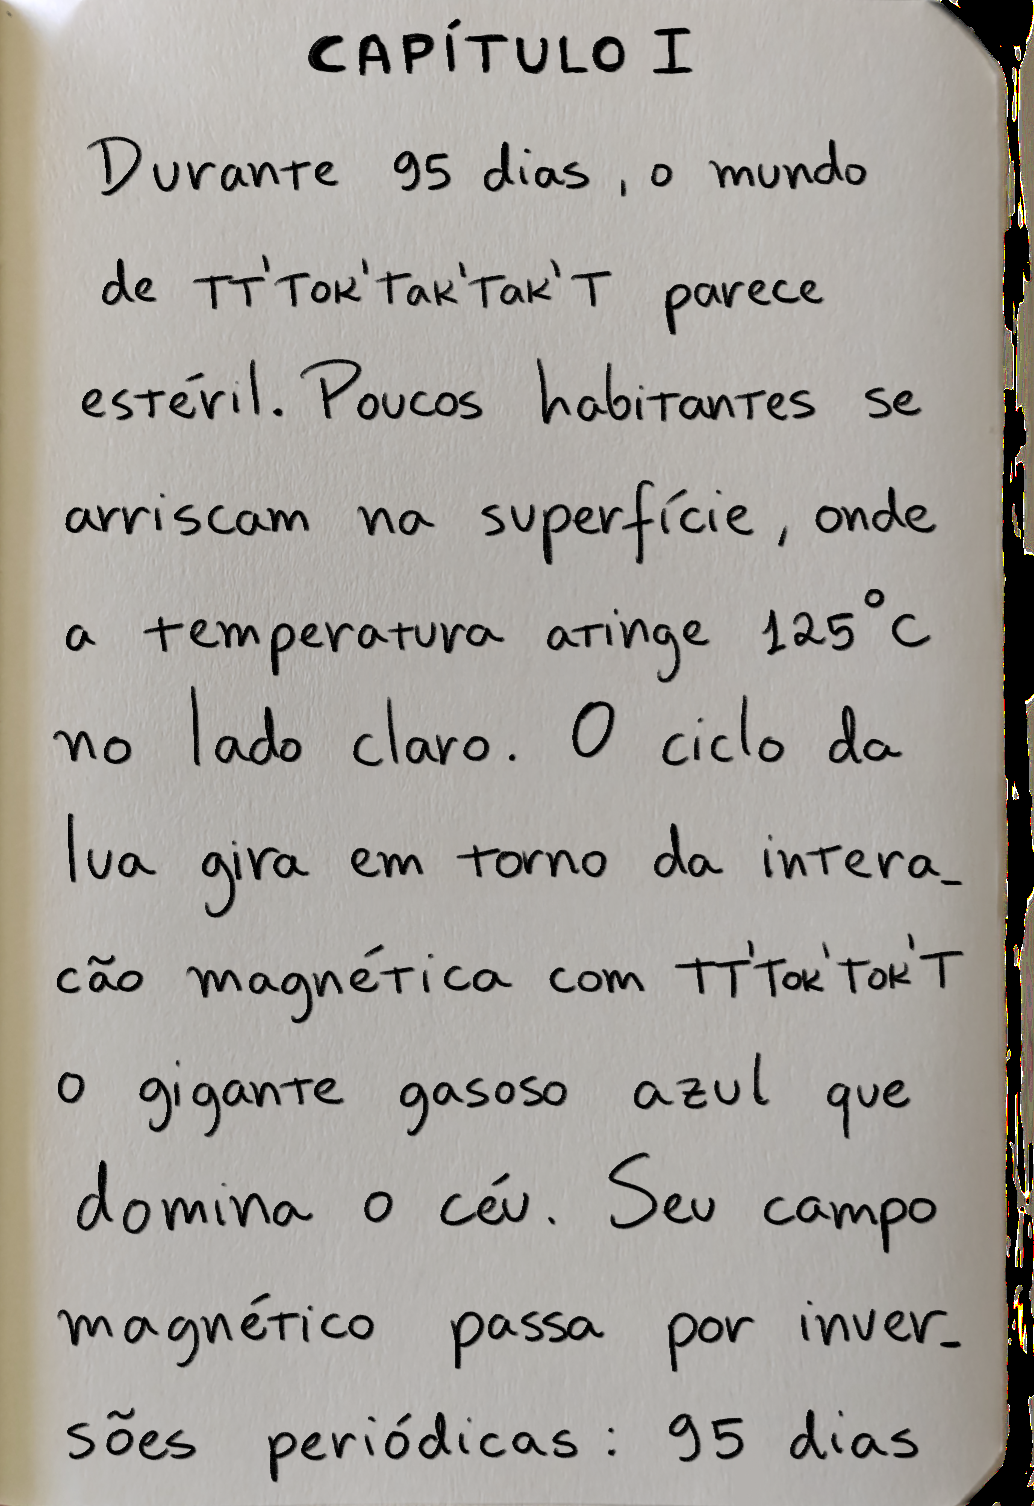 CAPÍTULO I
Durante 95 dias, o mundo
de TT'Tok'Tak'Tak'T parece
estéril. Poucos habitantes se
arriscam na superfície, onde
a temperatura atinge 125°C
no lado claro. O ciclo da
lua gira em torno da intera_
cão magnética com TT'Tok'Tok'T
o gigante gasoso azul que
domina o céu. Seu campo
magnético passa por inver_
sões periódicas: 95 dias